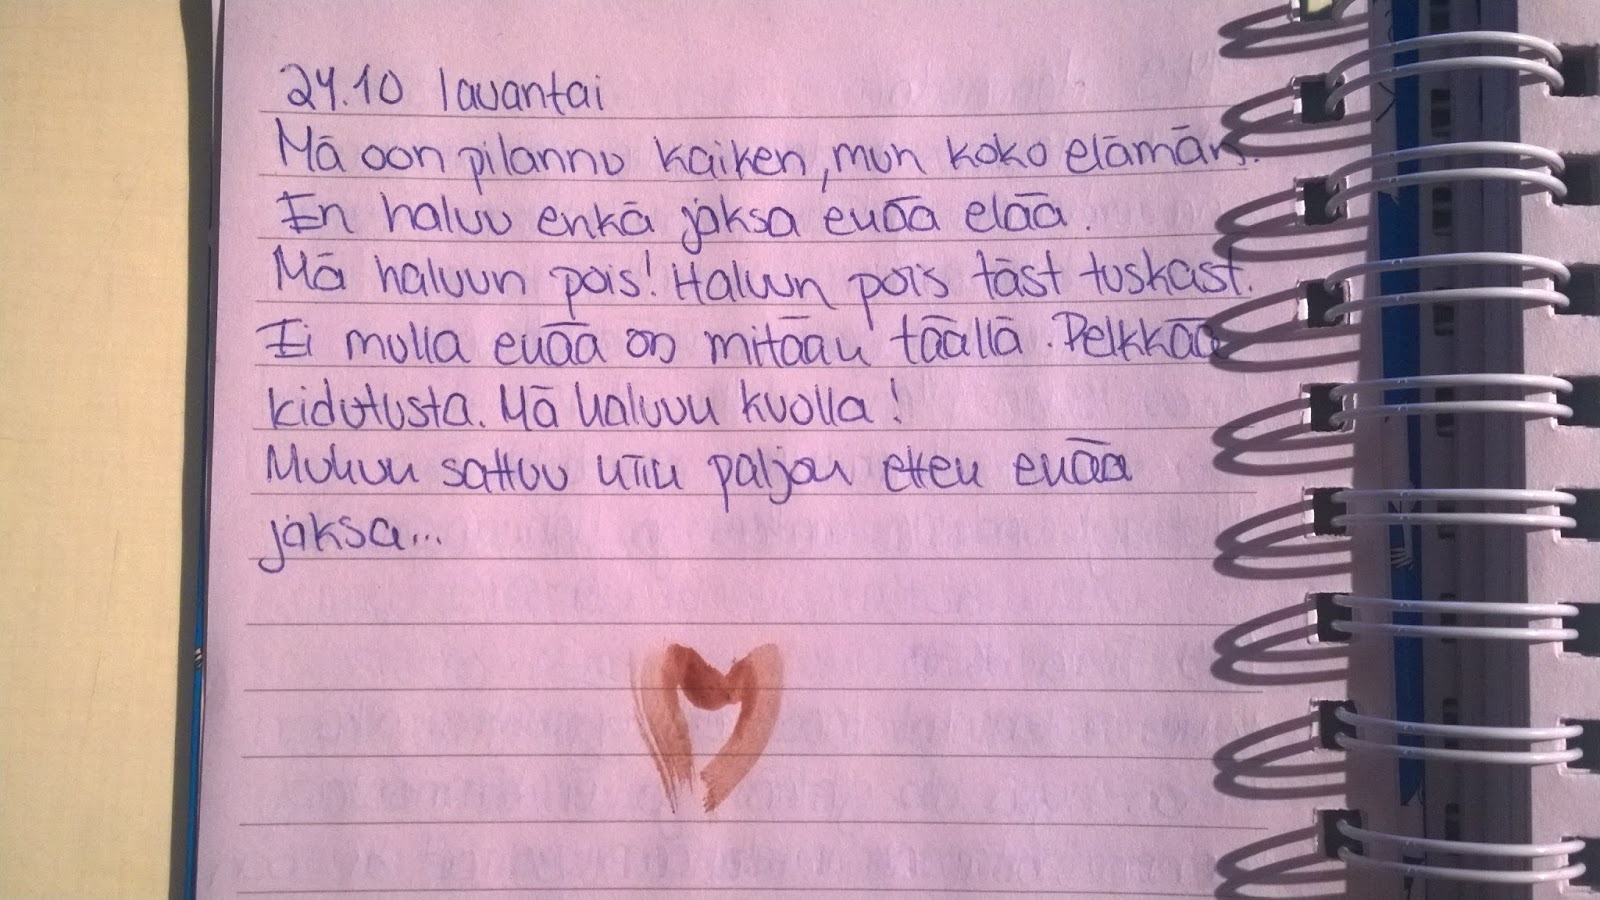 24.10 lauantai
Mä oon pilannu kaiken, mun koko elämän.
En haluu enkä jaksa enää elää.
Mä haluun pois! Haluun pois täst tuskast.
Ei mulla enää oo mitään täällä. Pelkkää
kidutusta. Mä haluun kuolla!
Muhun sattuu niin paljon etten enää
jaksa...